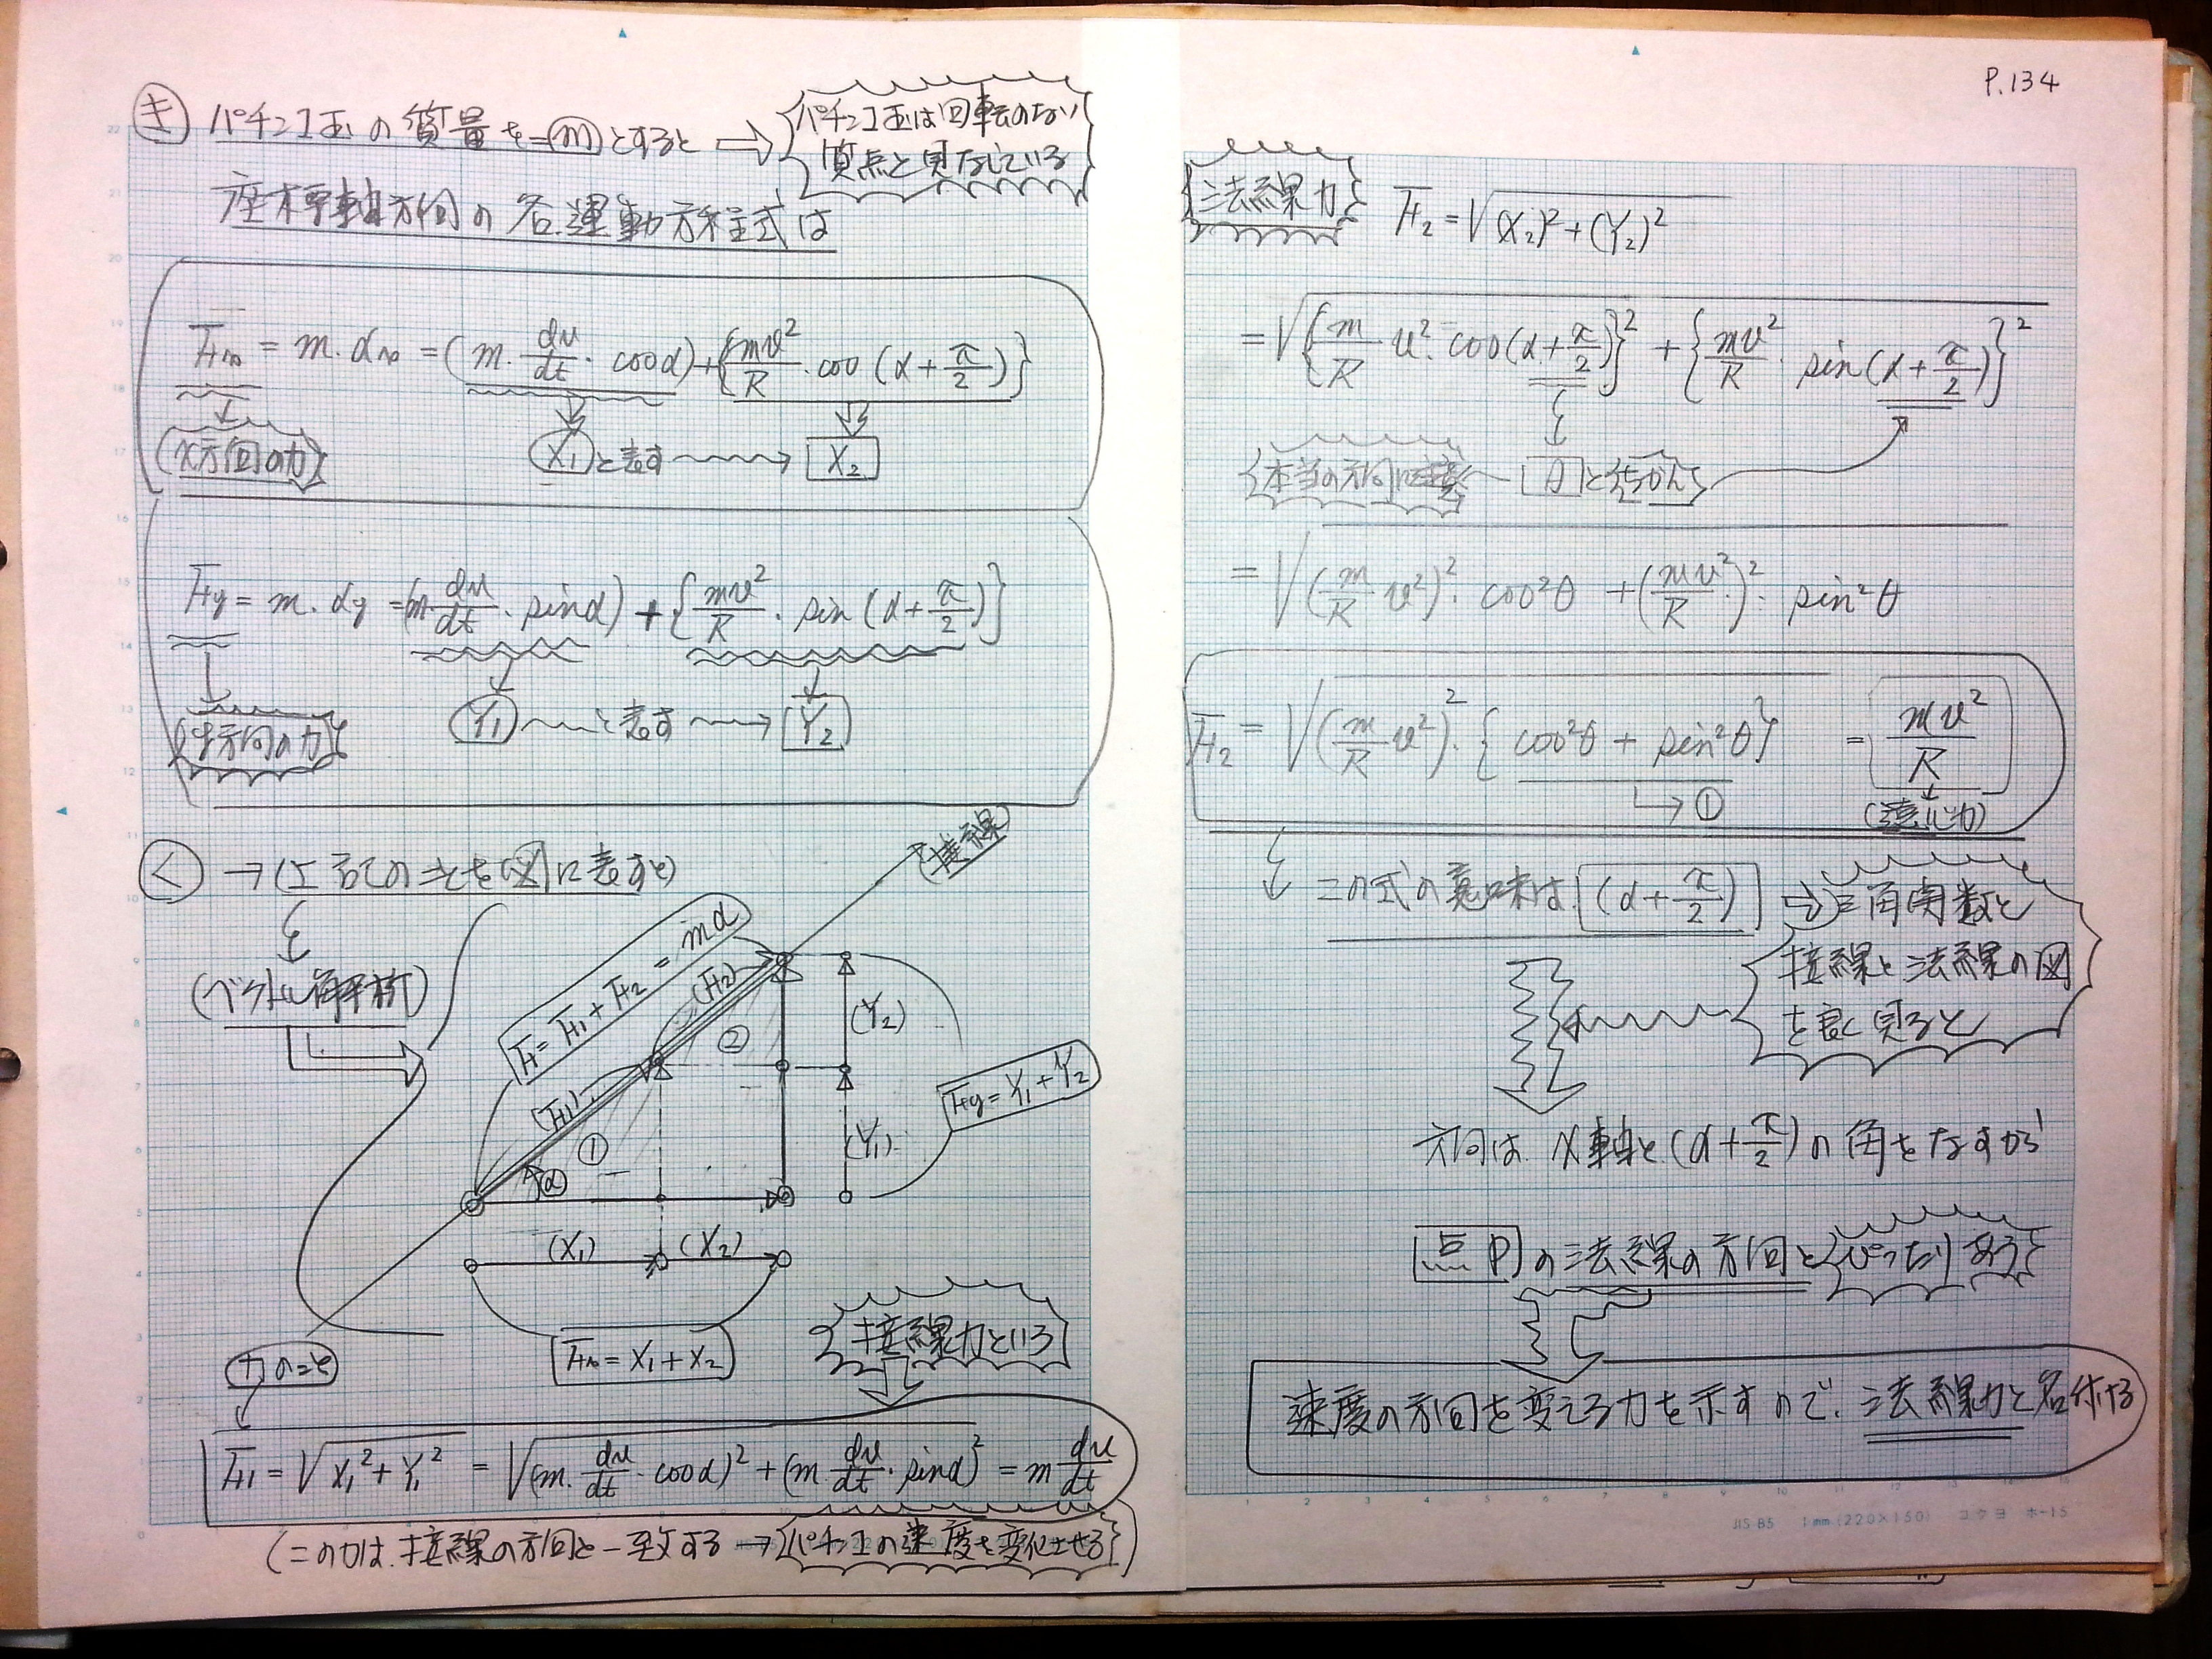 P.134
き パチンコ玉の質量を=mとすると ⇒ パチンコ玉は回転のない
質点と見なしている
座標軸方向の各運動方程式は
Fx = m・αx = (m・dv/dt・cosα)+{mv²/R・cos(α+π/2)}
x方向の力
X₁と表す → X₂
Fy = m・αy = (m dv/dt・sinα) + {mv²/R・sin(α+π/2)}
y方向の力
Y₁ と表す → Y₂
く →(上記のことを図に表すと)
(ベクトル解析)
接線
F=F₁+F₂=mα
(F₂)
②
(Y₂)
(F₁)
①
α
(Y₁)
Fy=Y₁+Y₂
(X₁) (X₂)
Fx=X₁+X₂
接線力という
力のこと
F₁=√X₁²+Y₁² = √(m・dv/dt・cosα)²+(m・dv/dt・sinα)² = m dv/dt
(この力は接線の方向と一致する→パチンコの速度を変化させる)
法線力 F₂=√(X₂)²+(Y₂)²
=√{m/R v²・cos(α+π/2)}² + {mv²/R・sin(α+π/2)}²
本当の方向に注意 θとおかん
=√(m/R v²)²・cos²θ +(mv²/R)²・sin²θ
F₂=√(m/R v²)²・{cos²θ + sin²θ} = mv²/R
→①
(遠心力)
この式の意味は (α+π/2) ⇒ 三角関数と
接線と法線の図
を良く見ると
方向は x軸と(α+π/2)の角をなすから
点Pの法線の方向とぴったりあう
速度の方向を変える力を示すので、法線力と名付ける
JIS B5 1mm(220×150) コクヨ ホ-15